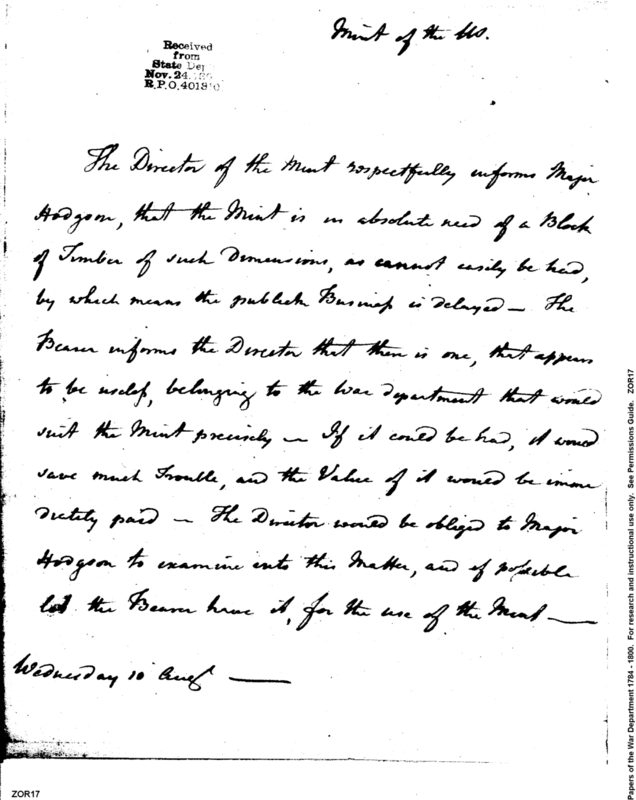 Mint of the US.
Received
from
State Dep
Nov. 24.
R.P.O. 4018
The Director of the Mint respectfully informs Major
Hodgson, that the Mint is in absolute need of a Block
of Timber of such Dimensions, as cannot easily be had,
by which means the publick Business is delayed — The
Bearer informs the Director that there is one, that appears
to be useless, belonging to the War department that would
suit the Mint precisely — If it could be had, it would
save much Trouble, and the Value of it would be imme
diately paid — The Director would be obliged to Major
Hodgson to examine into this Matter, and if possible
let the Bearer have it, for the use of the Mint —
Wednesday 10 Augt —
Papers of the War Department 1784 - 1800. For research and instructional use only. See Permissions Guide. ZOR17
ZOR17